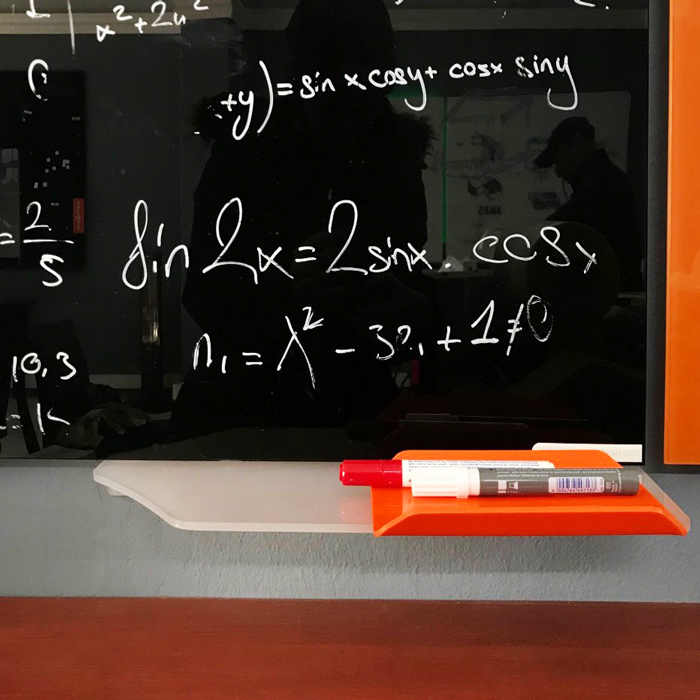 x²+2u²
+y)=sin x cosy+ cosx siny
=2/5
sin 2x=2sinx. cosx
10.3
n₁ = λ² - 32₁ + 1≠0